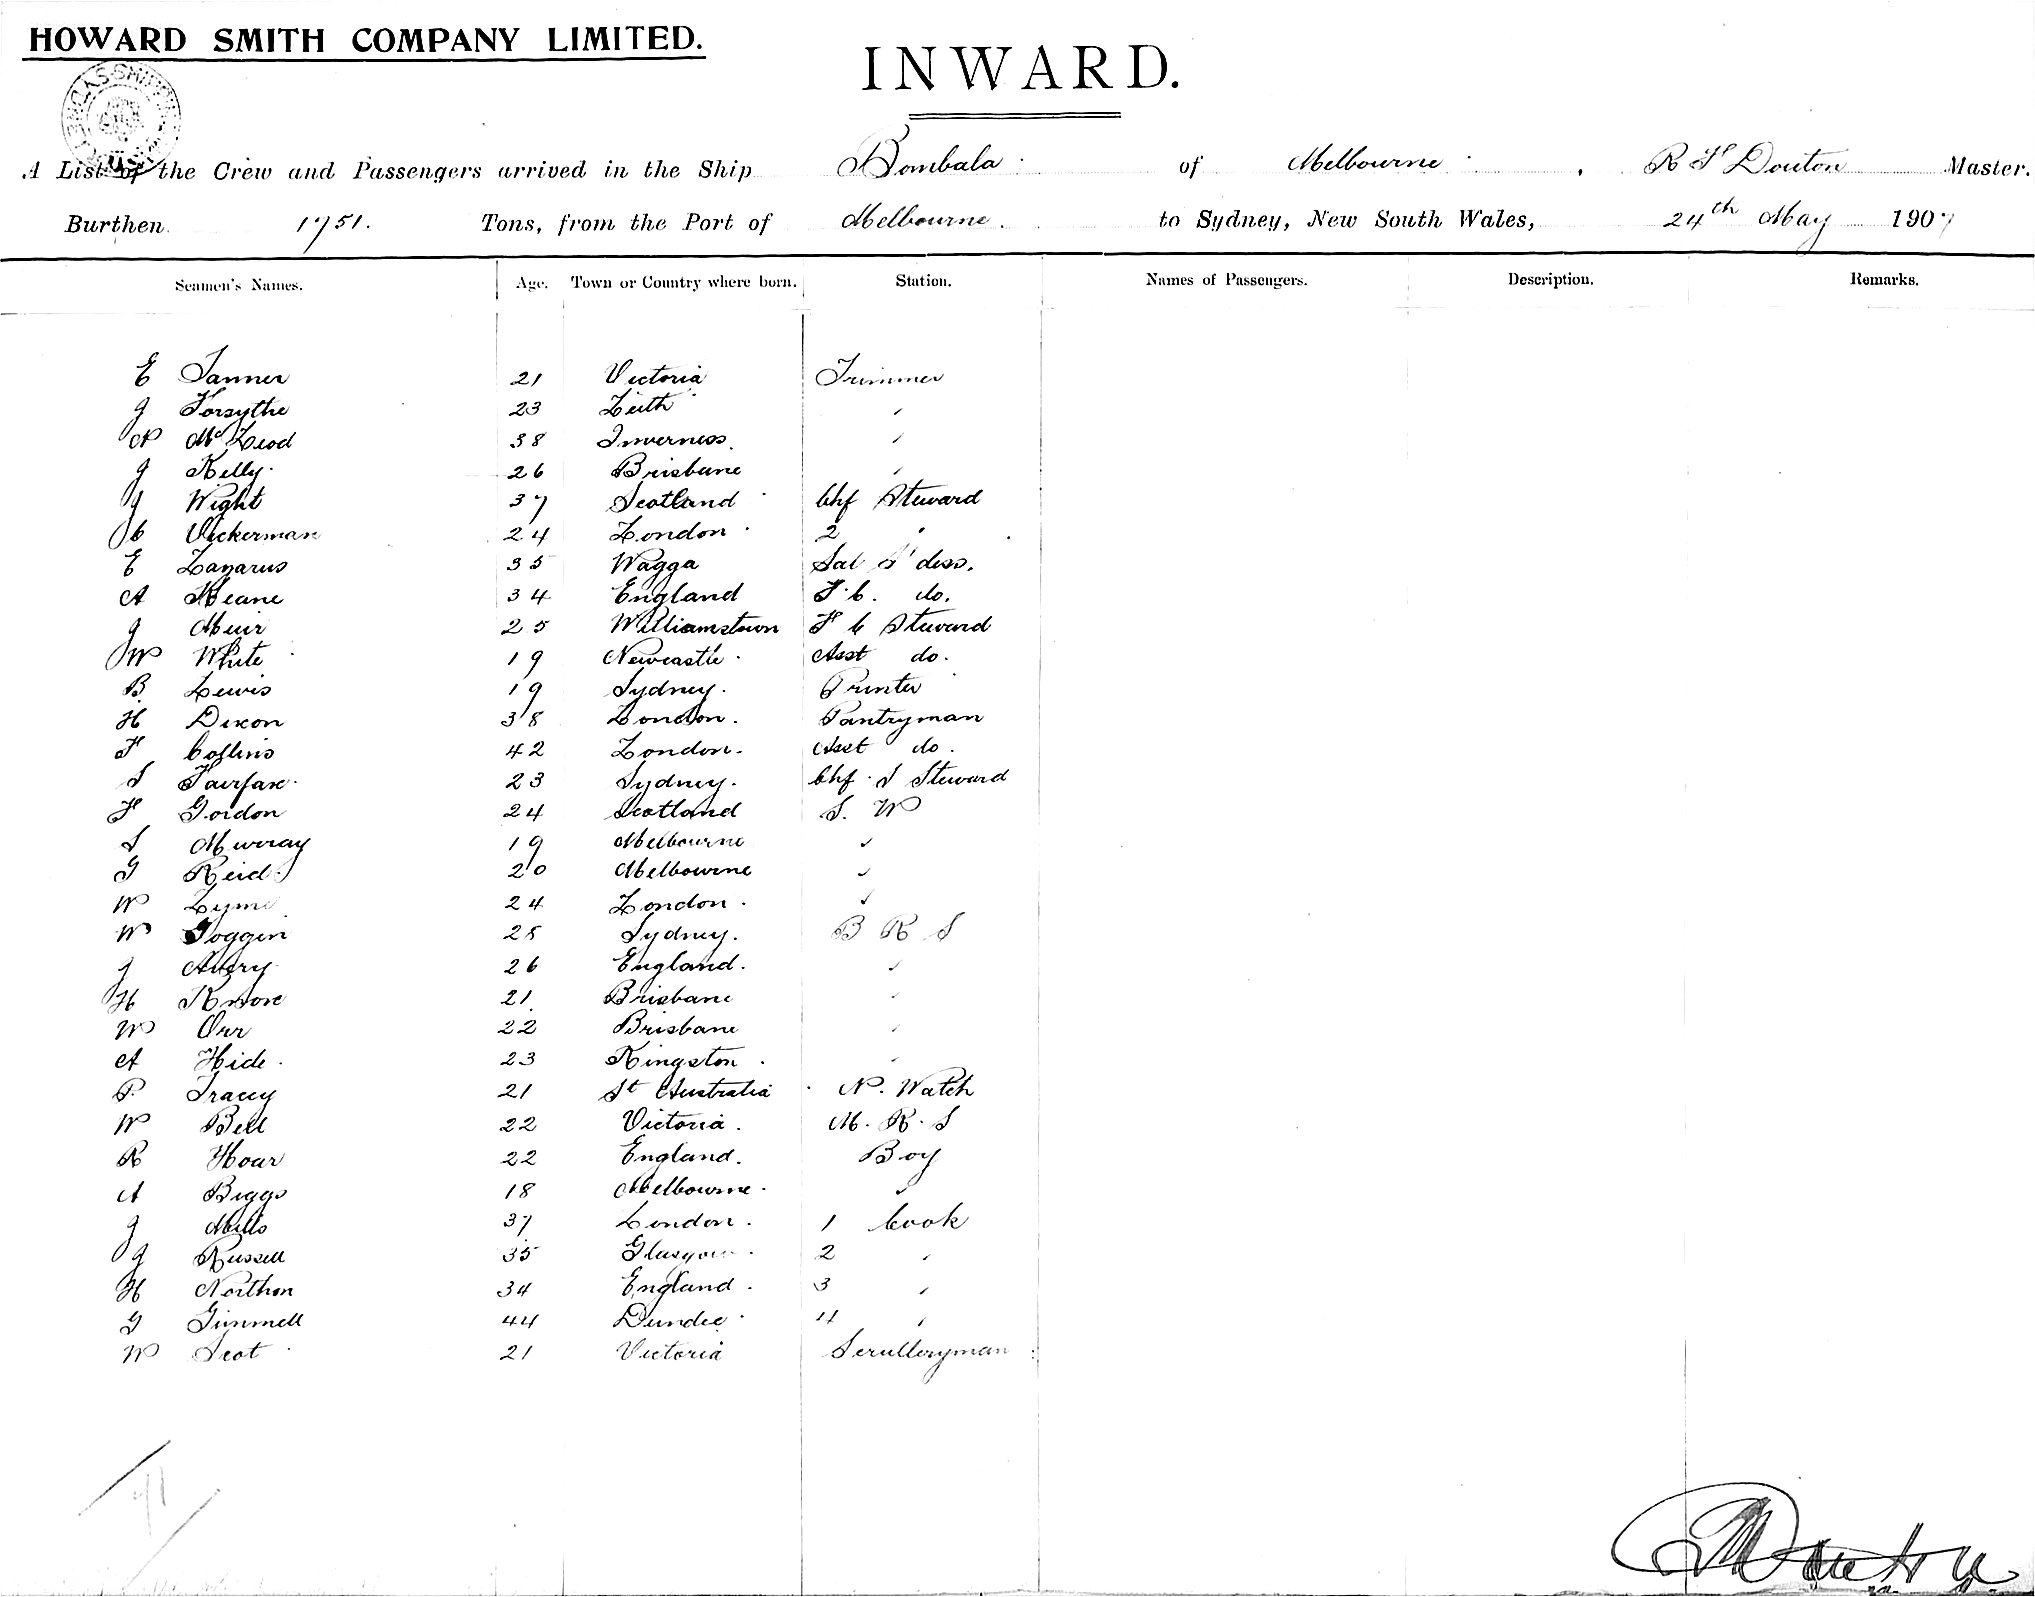 HOWARD SMITH COMPANY LIMITED.
INWARD.
A List of the Crew and Passengers arrived in the Ship Bombala of Melbourne, R F Douton Master.
Burthen 1751. Tons, from the Port of Melbourne. to Sydney, New South Wales, 24th May 1907
Seamen's Names. Age. Town or Country where born. Station. Names of Passengers. Description. Remarks.
E Tanner 21 Victoria Trimmer
J Forsythe 23 Leith "
N McLeod 38 Inverness "
J Kelly 26 Brisbane "
J Wight 37 Scotland Chf Steward
C Vickerman 24 London 2 "
E Lazarus 35 Wagga Sal S'dess.
A Keane 34 England F.C. do.
J Muir 25 Williamstown F C Steward
W White 19 Newcastle Asst do.
B Lewis 19 Sydney. Printer
H Dixon 38 London. Pantryman
F Collins 42 London. Asst do.
S Fairfax 23 Sydney. Chf S Steward
F Gordon 24 Scotland S. W
S Murray 19 Melbourne "
G Reid 20 Melbourne "
W Lyme 24 London "
W Goggin 25 Sydney. B R S
J Avery 26 England. "
H Knore 21 Brisbane "
W Orr 22 Brisbane "
A Hide 23 Kingston "
P. Tracey 21 St Australia N. Watch
W Bell 22 Victoria. M. R. S
R Hoar 22 England. Boy
A Biggs 18 Melbourne "
J Mills 37 London. 1 Cook
J Russell 35 Glasgow 2 "
H Northon 34 England. 3 "
G Gimmell 44 Dundee 4 "
W Scot 21 Victoria Scrulleryman